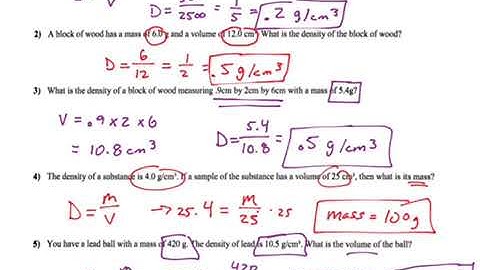 D = /2500 = 1/5 = .2 g/cm³
2) A block of wood has a mass of 6.0 g and a volume of 12.0 cm³. What is the density of the block of wood?
D = 6/12 = 1/2 = .5 g/cm³
3) What is the density of a block of wood measuring .9cm by 2cm by 6cm with a mass of 5.4g?
V = .9 x 2 x 6
= 10.8 cm³
D = 5.4/10.8 = .5 g/cm³
4) The density of a substance is 4.0 g/cm³. If a sample of the substance has a volume of 25 cm³, then what is its mass?
D = m/V → 25 . 4 = m/25 . 25 mass = 100g
5) You have a lead ball with a mass of 420 g. The density of lead is 10.5 g/cm³. What is the volume of the ball?
420